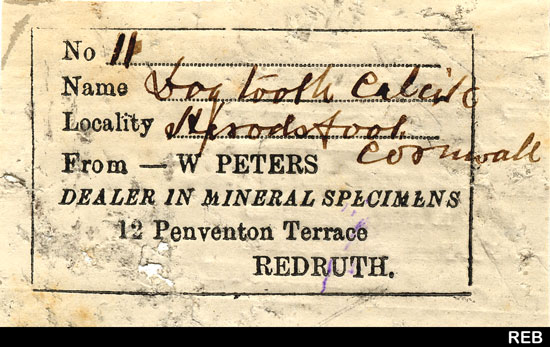 No 11
Name Dogtooth Calcite
Locality Herodsfoot
Cornwall
From — W PETERS
DEALER IN MINERAL SPECIMENS
12 Penventon Terrace
REDRUTH.
REB